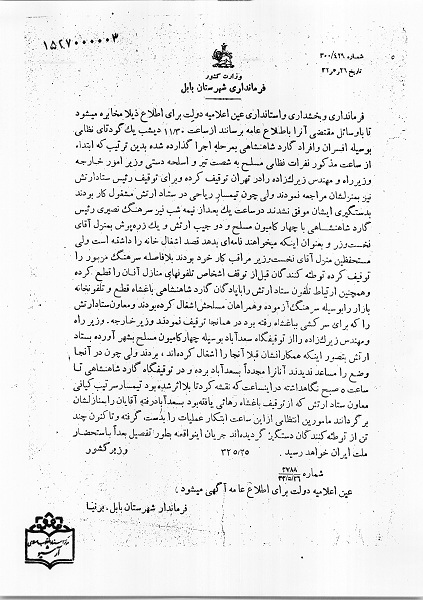 ۱۵۲۷۰۰۰۰۰۳
شماره ۳۰۰/۴۲۹
تاریخ ۳۲٫۵٫۲۶
وزارت کشور
فرمانداری شهرستان بابل
فرمانداری و بخشداری و استانداری عین اعلامیه دولت برای اطلاع ذیلا مخابره میشود
تا با وسائل مقتضی آنرا باطلاع عامه برسانند از ساعت ۱۱/۳۰ دیشب یك كودتای نظامی
بوسیله افسران و افراد گارد شاهنشاهی بمرحله اجرا گذارده شده بدین ترتیب که ابتداء
از ساعت مذکور نفرات نظامی مسلح به شصت تیر و اسلحه دستی وزیر امور خارجه
وزیر راه و مهندس زیرك‌زاده را در تهران توقیف کرده و برای توقیف رئیس ستاد ارتش
نیز بمنزلشان مراجعه نمودند ولی چون تیمسار ریاحی در ستاد ارتش مشغول کار بودند
بدستگیری ایشان موفق نشدند در ساعت یك بعد از نیمه شب نیز سرهنگ نصیری رئیس
گارد شاهنشاهی با چهار کامیون مسلح و دو جیپ ارتش و یك زره‌پوش بمنزل آقای
نخست‌وزیر و بعنوان اینکه میخواهند نامه‌ای بدهد قصد اشغال خانه را داشته است ولی
مستحفظین منزل آقای نخست‌وزیر مراقب کار خود بودند بلافاصله سرهنگ مزبور را
توقیف کرده توطئه کنندگان قبل از توقف اشخاص تلفونهای منازل آنان را قطع کرده
و همچنین ارتباط تلفون ستاد ارتش را با پادگان گارد شاهنشاهی باغشاه قطع و تلفونخانه
بازار را بوسیله سرهنگ آزموده و همراهان مسلحش اشغال کرده بودند و معاون ستاد ارتش
را که برای سرکشی بباغشاه رفته بود در همانجا توقیف نمودند وزیر خارجه ـ وزیر راه
و مهندس زیرك‌زاده را از توقیفگاه سعدآباد بوسیله چهار کامیون مسلح بشهر آورده بستاد
ارتش بتصور اینکه همکارانشان قبلا آنجا را اشغال کرده‌اند، بردند ولی چون در آنجا
وضع را مساعد ندیدند آنانرا مجدداً بسعدآباد برده و در توقیفگاه گارد شاهنشاهی تا
ساعت ۵ صبح نگاهداشته در اینساعت که نقشه کودتا بلااثر شده بود تیمسار سرتیپ کیانی
معاون ستاد ارتش که از توقیف باغشاه رهائی یافته بود بسعدآباد رفته آقایان را بمنازلشان
برگردانند مأمورین انتظامی از این ساعت ابتکار عملیات را بدست گرفته و تاکنون چند
تن از توطئه‌کنندگان دستگیر گردیده‌اند جریان این واقعه بطور تفصیل بعداً باستحضار
ملت ایران خواهد رسید.
۳۲/۵/۲۵ وزیر کشور
شماره ۲۷۸۸
۳۲/۵/۲۶
عین اعلامیه دولت برای اطلاع عامه آگهی میشود)
فرماندار شهرستان بابل ـ برنیا